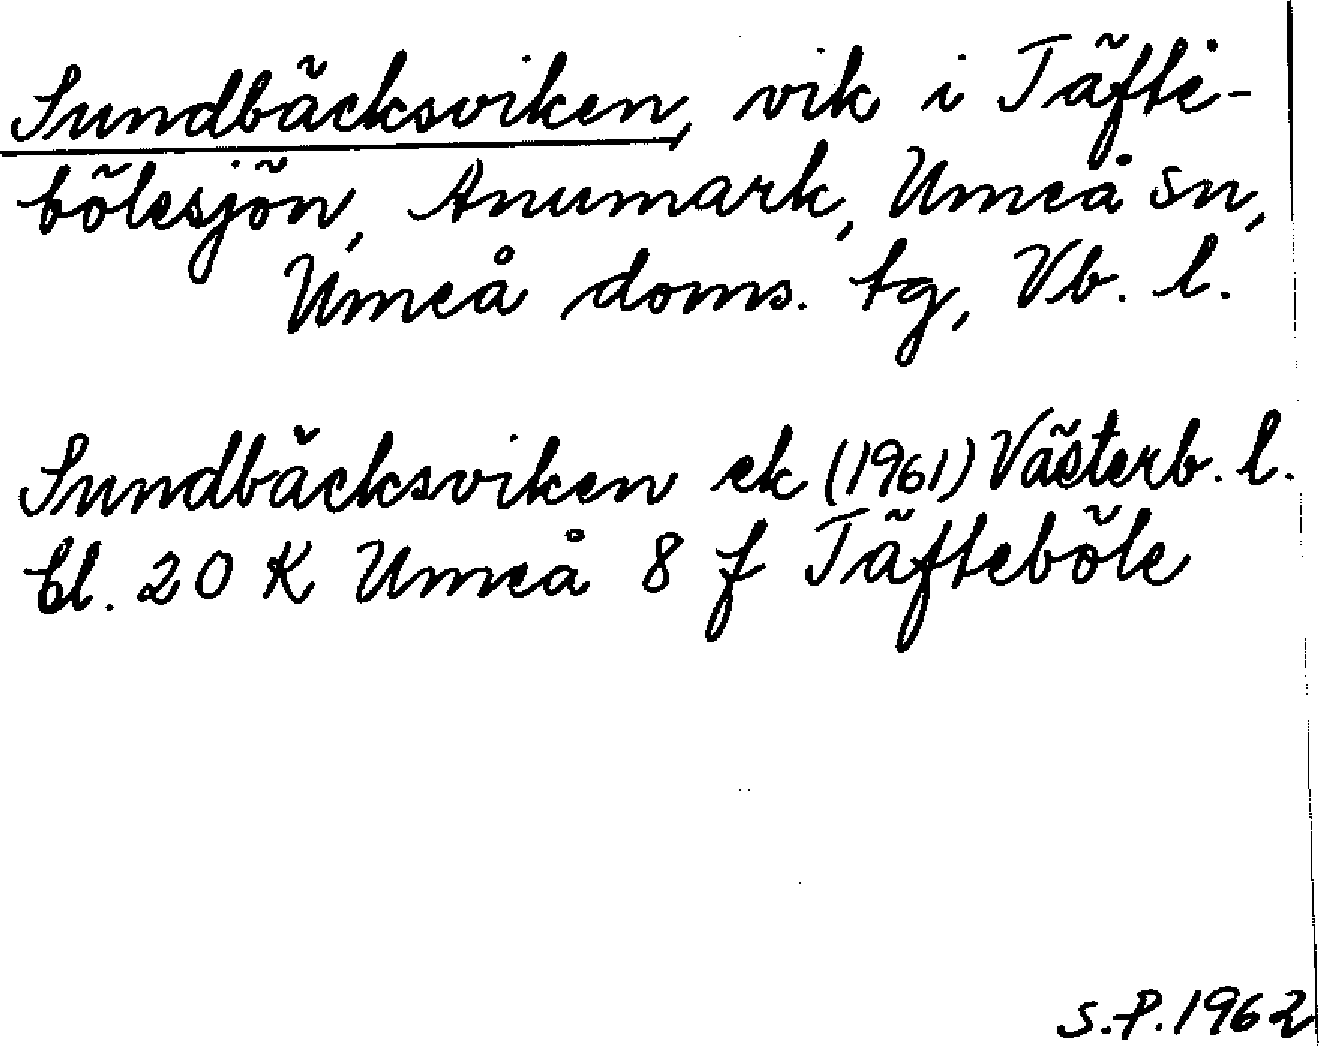 Sundbäcksviken, vik i Täfte-
bölesjön, Anumark, Umeå sn,
Umeå doms. tg, Vb. l.
Sundbäcksviken ek (1961) Västerb. l.
bl. 20 K Umeå 8 f Täfteböle
S.P. 1962